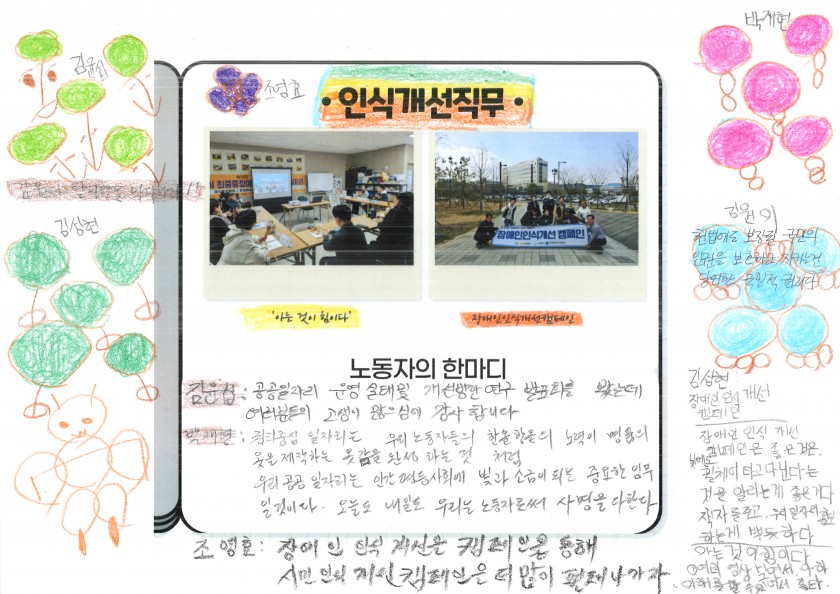 박재현
김윤섭
조영호
·인식개선직무·
장애인인식개선 캠페인
김상현
김원이
헌법에도 보장된 국민의
인권을 보호하고 지키는건
당연한 국민적 권리다
'아는 것이 힘이다'
장애인인식개선캠페인
노동자의 한마디
김윤섭: 공공일자리 운영 실태 및 개선방안 연구 발표회를 봤는데
여러분들의 고생이 많으심에 감사 합니다
박재현: 일자리는 우리 노동자들의 한올한올의 노력이 명품의
옷을 제작하는 옷감을 완성 하는 것 처럼
우리 공공 일자리는 인간 평등사회에 빛과 소금이 되는 중요한 임무
일것이다. 오늘도 내일도 우리는 노동자로써 사명을 다한다
조영호: 장애인 인식 개선을 캠페인을 통해
시민 인식 개선 캠페인은 더 많이 나가자.
김상현:
장애인 인식 개선
캠페인
장애인 인식 개선
캠페인은 좋은 점은
휠체어 타고 다닌다는
것을 알리는게 좋은거다
하는게 뿌듯하다
아는 것이 힘이다
여러 영상 보면서
이해를 할 수 있어서 좋다.